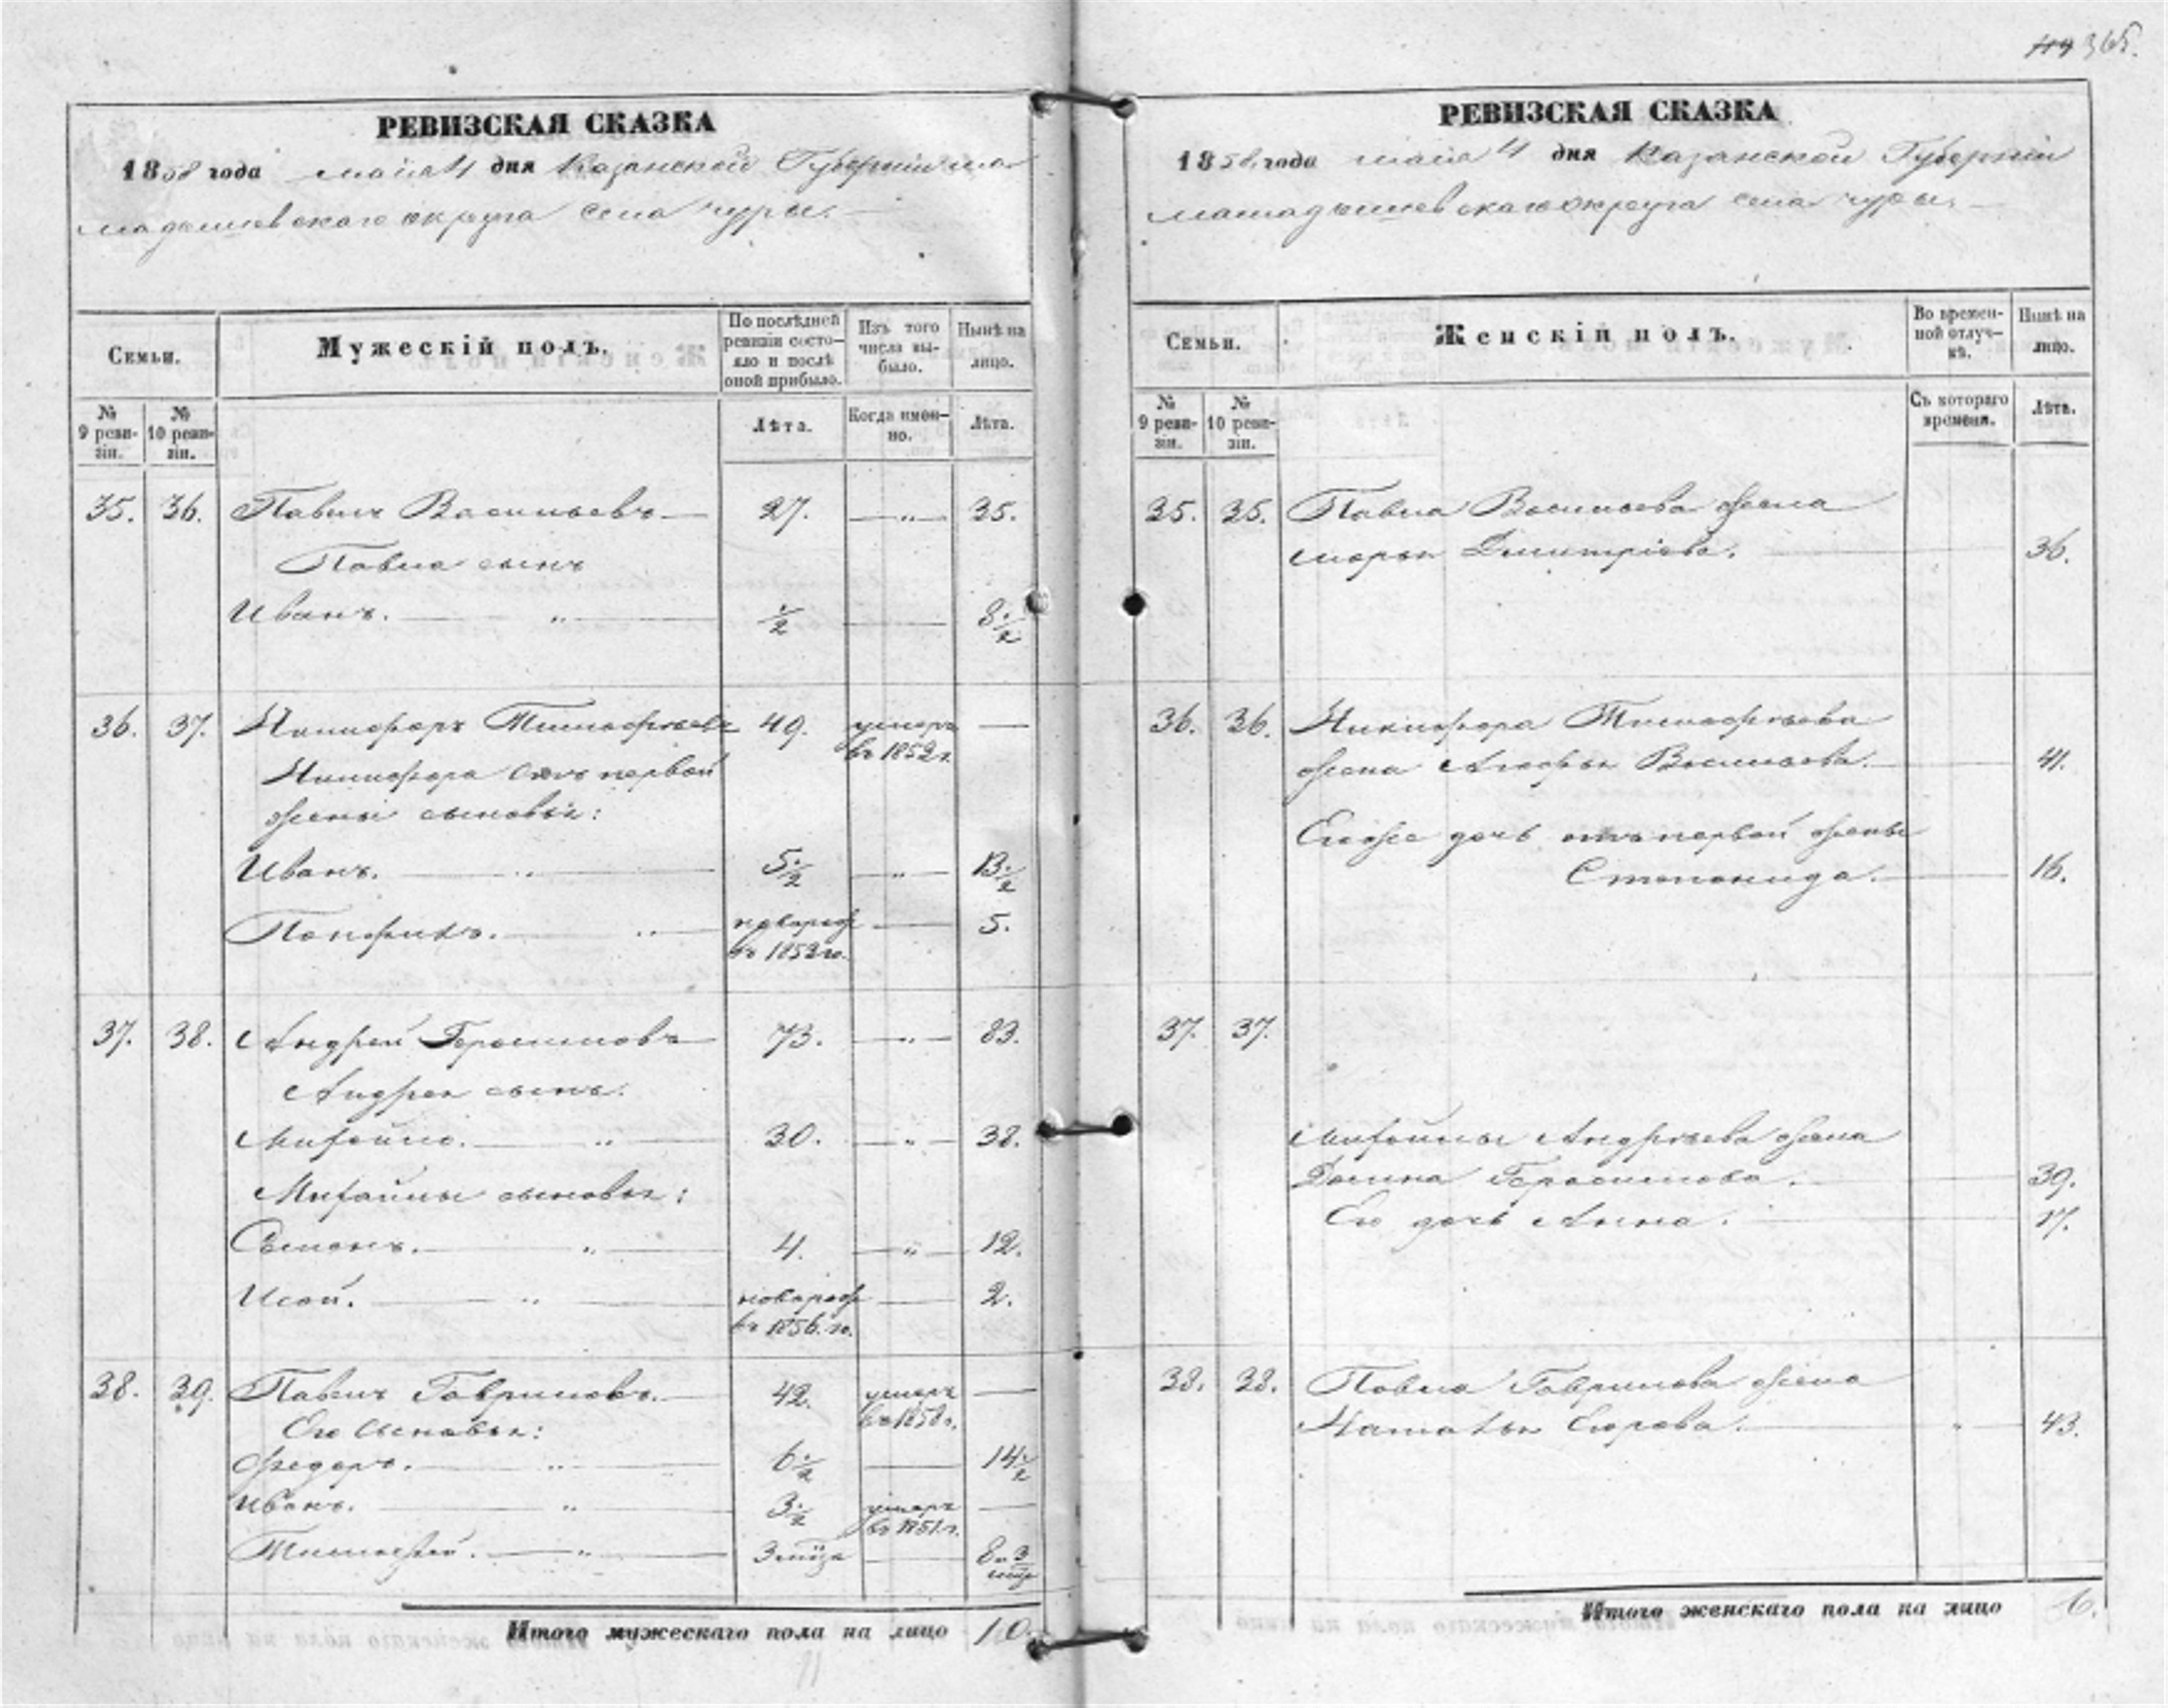 365.
РЕВИЗСКАЯ СКАЗКА
1858 года мая 4 дня Казанской Губернiи ма-
мадышевскаго округа села чуры.
Семьи.
Мужескiй полъ.
По послѣдней ревизiи состо-яло и послѣ оной прибыло.
Изъ того числа вы-было.
Нынѣ на лицо.
№ 9 реви-зiи.
№ 10 реви-зiи.
Лѣта.
Когда имен-но.
Лѣта.
35. 36. Павелъ Васильевъ 27. „ 35.
Павла сынъ
Иванъ. „ ½ 8½
36. 37. Никифоръ Тимофѣевъ 49. умеръ въ 1852 г.
Никифора отъ первой
жены сыновья:
Иванъ. „ 5½ „ 13½
Панфилъ. „ новорож въ 1852 го. 5.
37. 38. Андрей Герасимовъ 73. „ 83.
Андрея сынъ.
Михайло. „ 30. „ 38.
Михайлы сыновья:
Семенъ. „ 4. „ 12.
Исай. „ новорож въ 1856. го. 2.
38. 39. Павелъ Гавриловъ. 42. умеръ въ 1858 г.
Его сыновья:
Федоръ. „ 6½ 14½
Иванъ. „ 3½ умеръ въ 1851 г.
Тимофей. „ 3 мѣся 8 и 3 мѣс
Итого мужескаго пола на лицо 10.
11
РЕВИЗСКАЯ СКАЗКА
1858 года мая 4 дня Казанской Губернiи
мамадышевскаго округа села чуры.
Семьи.
Женскiй полъ.
Во времен-ной отлуч-кѣ.
Нынѣ на лицо.
№ 9 реви-зiи.
№ 10 реви-зiи.
Съ котораго времени.
Лѣта.
35. 35. Павла Васильева жена
марья Дмитрiева. 36.
36. 36. Никифора Тимофѣева
жена Агафья Васильева. 41.
Егоже дочь отъ первой жены
Степонида. 16.
37. 37.
Михайлы Андрѣева жена
Домна Герасимова. 39.
Его дочь Анна. 17.
38. 38. Павла Гаврилова жена
Наталья Егорова. „ 43.
Итого женскаго пола на лицо 6.